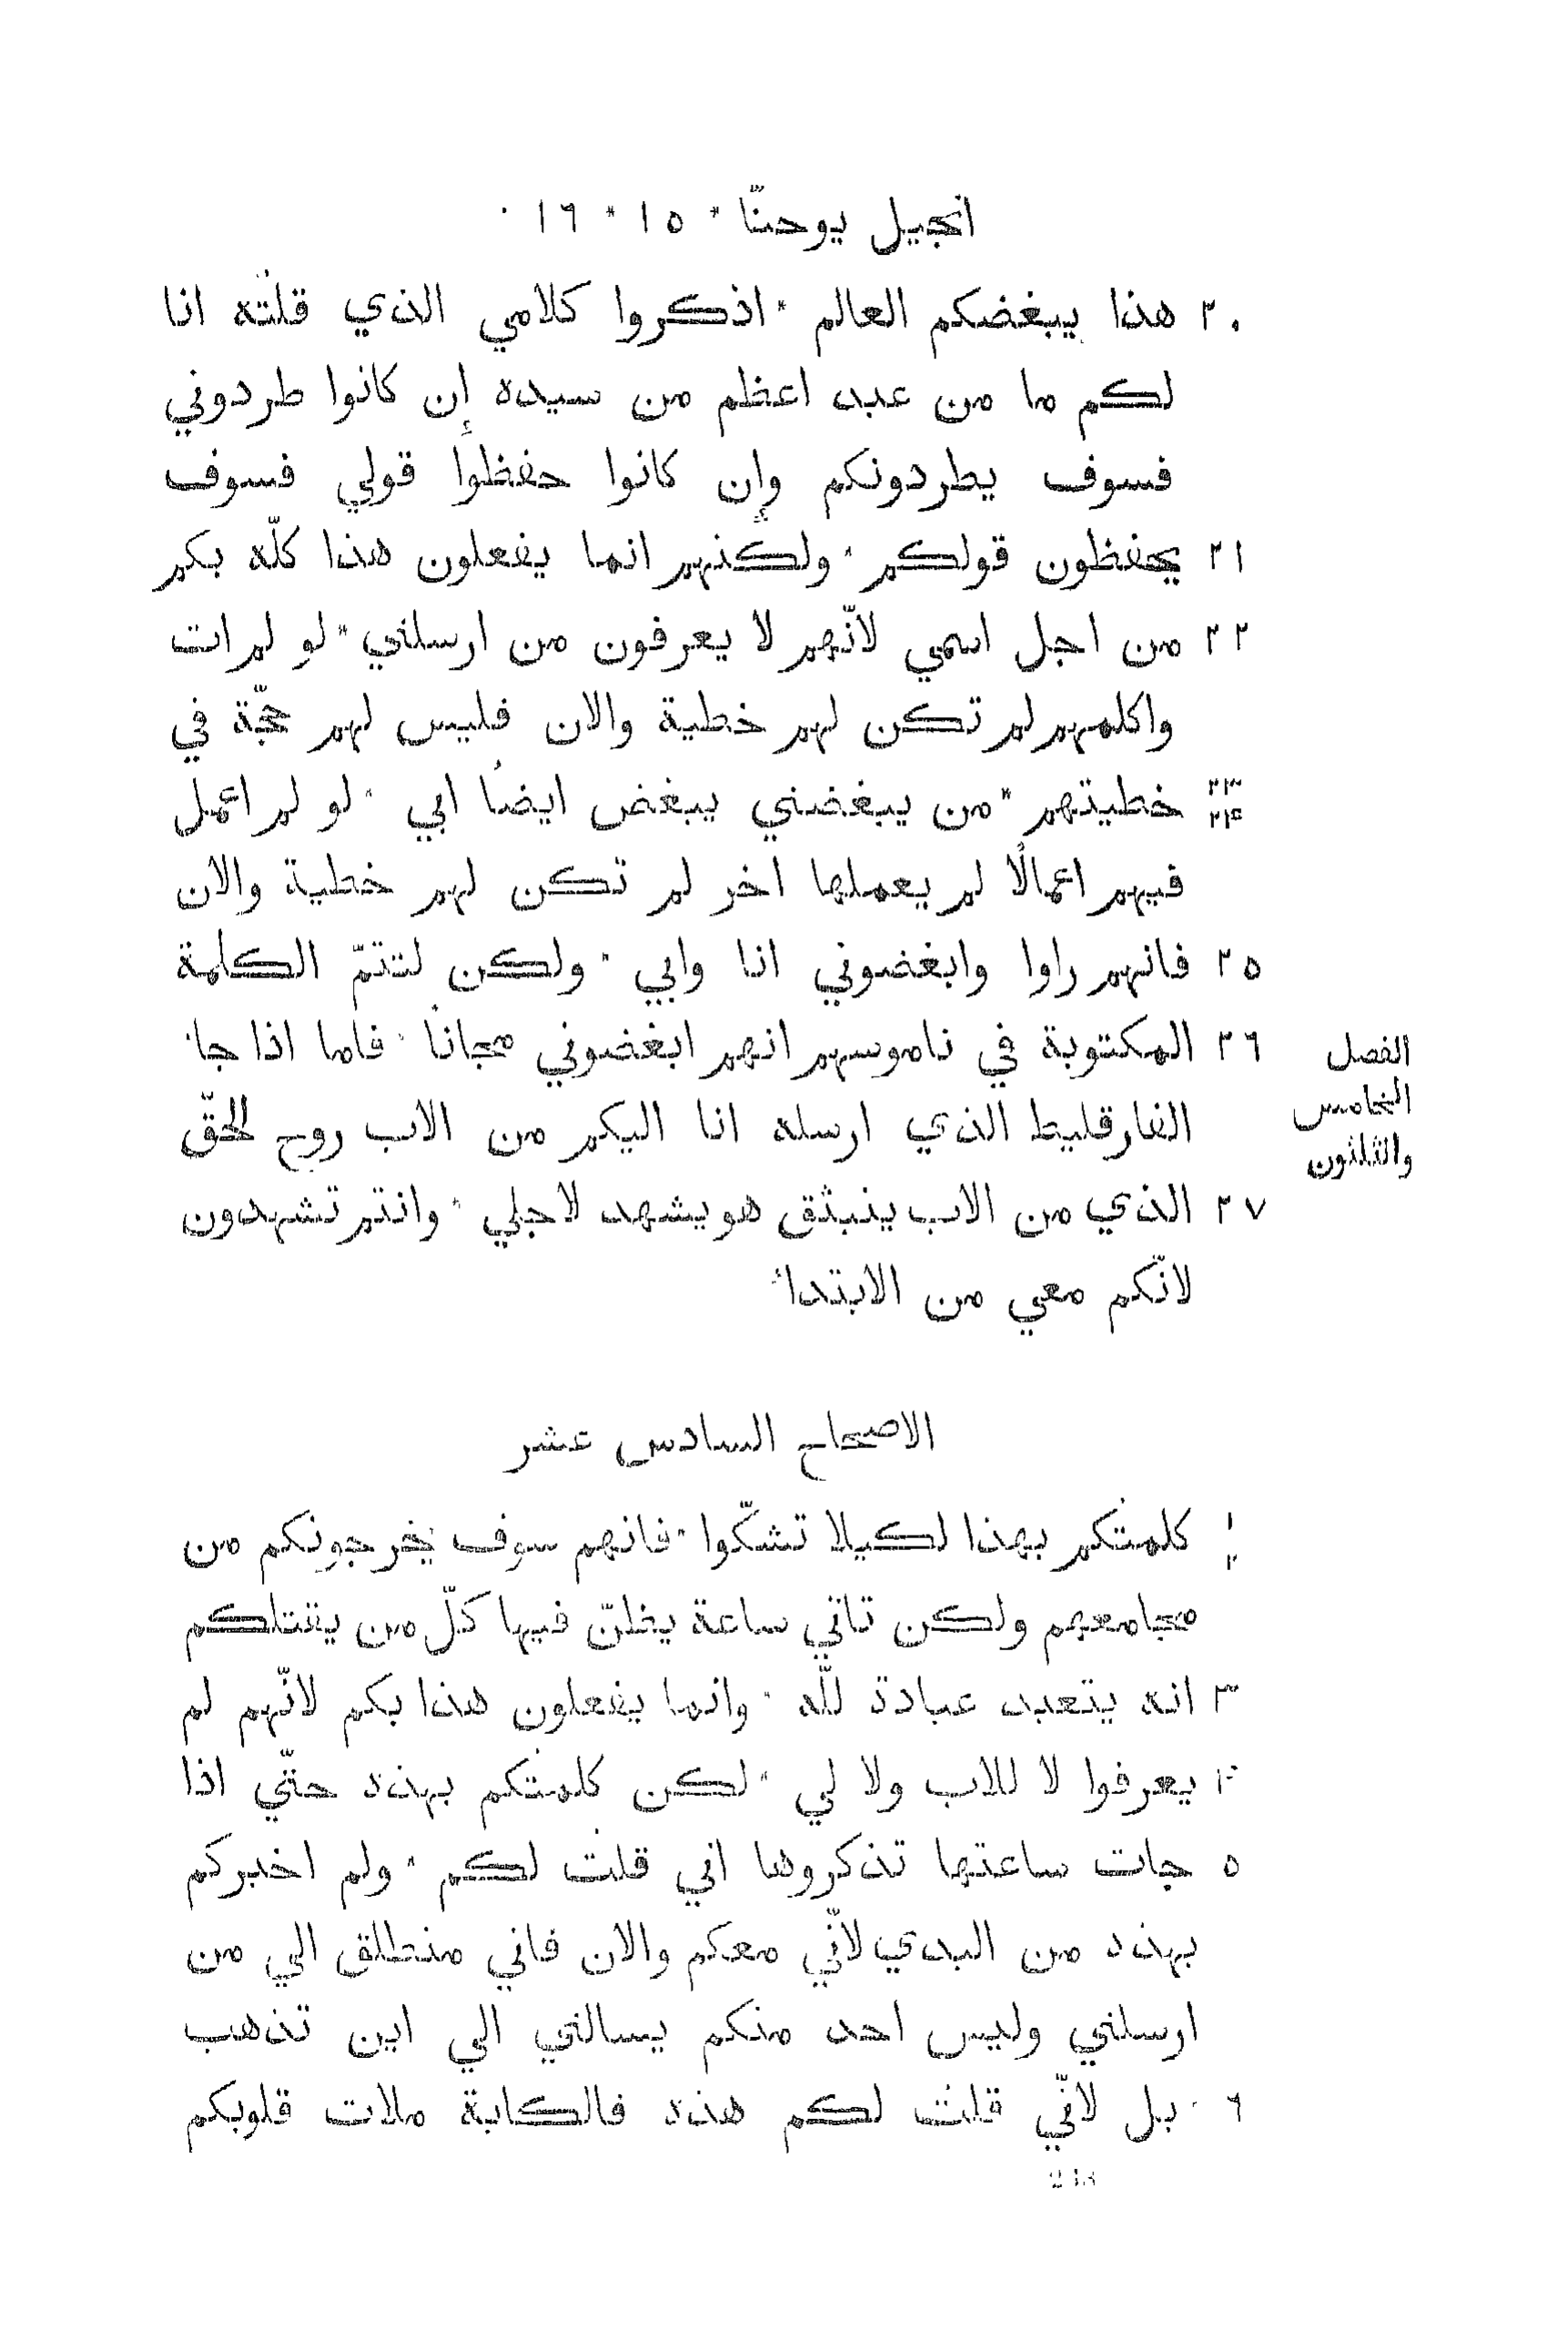 انجيل يوحنّا * ١٥ * ١٦ *
٢٠ هذا يبغضكم العالم * اذكروا كلامي الذي قلتُه انا
لكم ما من عبد اعظم من سيده إن كانوا طردوني
فسوف يطردونكم وإن كانوا حفظوا قولي فسوف
٢١ يحفظون قولكم * ولكنهم انما يفعلون هذا كلّه بكم
٢٢ من اجل اسمي لانّهم لا يعرفون من ارسلني * لو لم ات
واكلمهم لم تكن لهم خطية والان فليس لهم حجّة في
٢٣ ٢۴ خطيتهم * من يبغضني يبغض ايضًا ابي * لو لم اعمل
فيهم اعمالًا لم يعملها اخر لم تكن لهم خطية والان
٢٥ فانهم راوا وابغضوني انا وابي * ولكن لتتمّ الكلمة
٢٦ المكتوبة في ناموسهم انهم ابغضوني مجانًا * فاما اذا جاء
الفصل الخامس والثلثون
الفارقليط الذي ارسله انا اليكم من الاب روح الحقّ
٢٧ الذي من الاب ينبثق هو يشهد لاجلي * وانتم تشهدون
لانّكم معي من الابتداء
الاصحاح السادس عشر
١ ٢ كلمتُكم بهذا لكيلا تشكّوا * فانهم سوف يخرجونكم من
مجامعهم ولكن تاتي ساعة يظنّ فيها كلّ من يقتلكم
٣ انه يتعبد عبادة للّه * وانما يفعلون هذا بكم لانّهم لم
۴ يعرفوا لا للاب ولا لي * لكن كلمتُكم بهذه حتّي اذا
٥ جات ساعتها تذكروها اني قلتُ لكم * ولم اخبركم
بهذه من البدي لانّي معكم والان فاني منطلق الي من
ارسلني وليس احد منكم يسالني الي اين تذهب
٦ * بل لانّي قلتُ لكم هذه فالكابة ملات قلوبكم